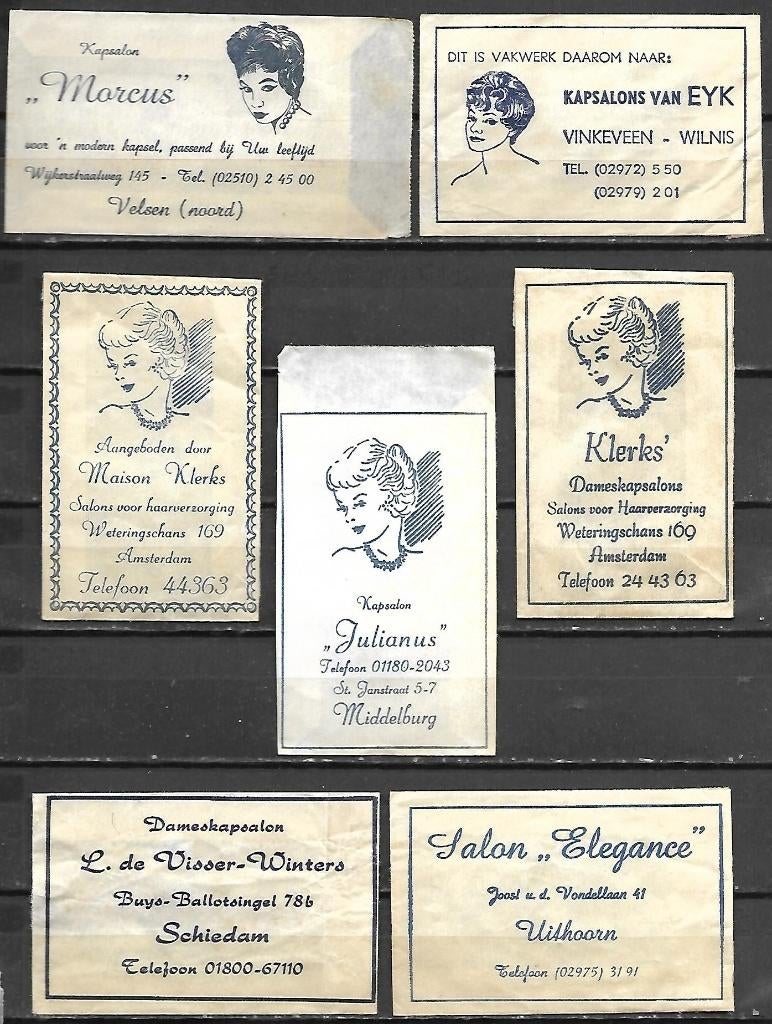 Kapsalon
„Morcus”
voor 'n modern kapsel, passend bij Uw leeftijd
Wijkerstraatweg 145 - Tel. (02510) 2 45 00
Velsen (noord)
DIT IS VAKWERK DAAROM NAAR:
KAPSALONS VAN EYK
VINKEVEEN - WILNIS
TEL. (02972) 5 50
(02979) 2 01
Aangeboden door
Maison Klerks
Salons voor haarverzorging
Weteringschans 169
Amsterdam
Telefoon 44363
Kapsalon
„Julianus”
Telefoon 01180-2043
St. Janstraat 5-7
Middelburg
Klerks'
Dameskapsalons
Salons voor Haarverzorging
Weteringschans 169
Amsterdam
Telefoon 24 43 63
Dameskapsalon
L. de Visser-Winters
Buys-Ballotsingel 78b
Schiedam
Telefoon 01800-67110
Salon „Elegance”
Joost v. d. Vondellaan 41
Uithoorn
Telefoon (02975) 31 91